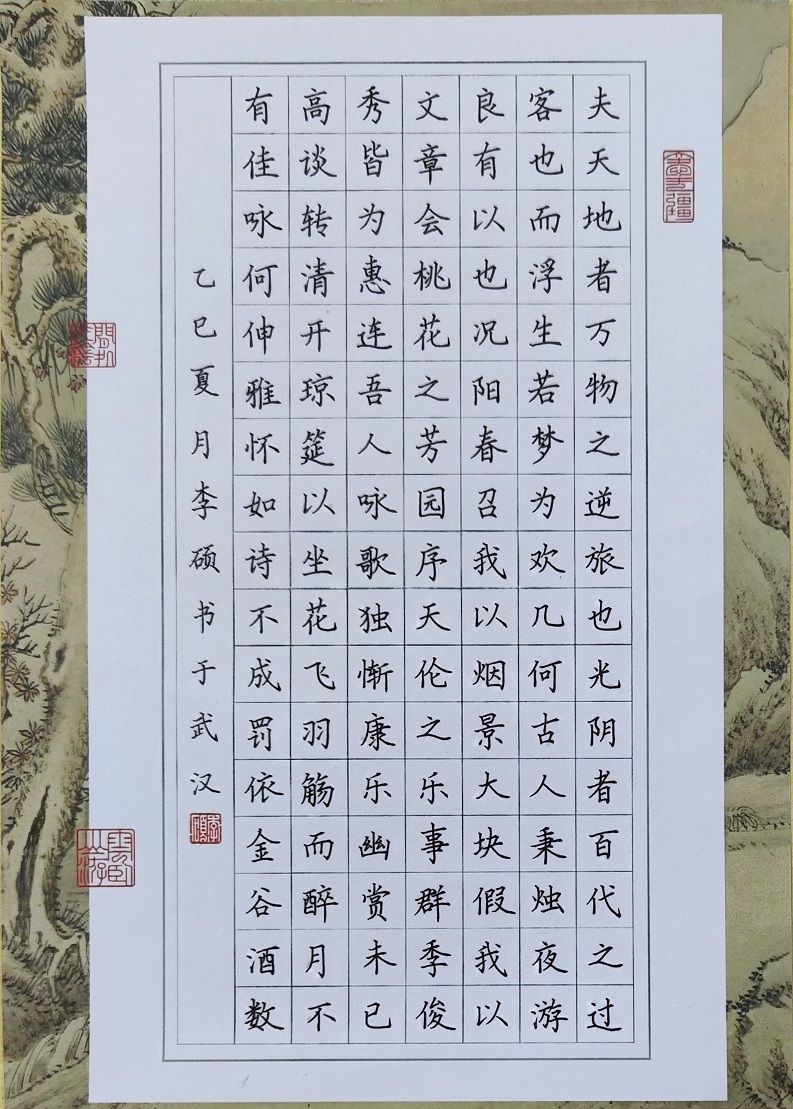 夫天地者万物之逆旅也光阴者百代之过
客也而浮生若梦为欢几何古人秉烛夜游
良有以也况阳春召我以烟景大块假我以
文章会桃花之芳园序天伦之乐事群季俊
秀皆为惠连吾人咏歌独惭康乐幽赏未已
高谈转清开琼筵以坐花飞羽觞而醉月不
有佳咏何伸雅怀如诗不成罚依金谷酒数
乙巳夏月李硕书于武汉
李硕